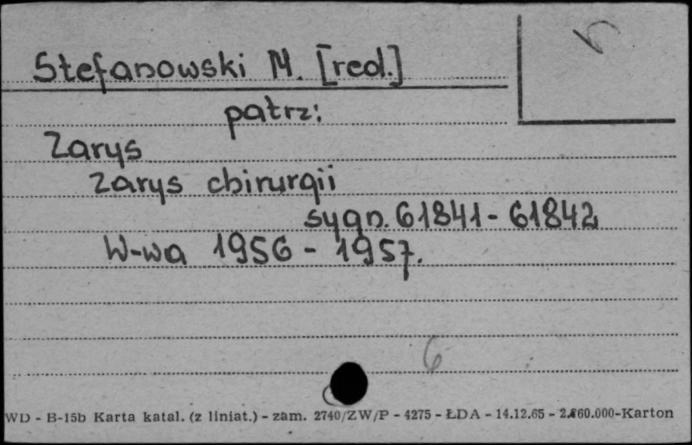 Stefanowski M. [red.]
patrz:
Zarys
Zarys chirurgii
sygn. 61841-61842
W-wa 1956-1957.
6
WD - B-15b Karta katal. (z liniat.) - zam. 2740/ZW/P - 4275 - ŁDA - 14.12.65 - 2.860.000-Karton